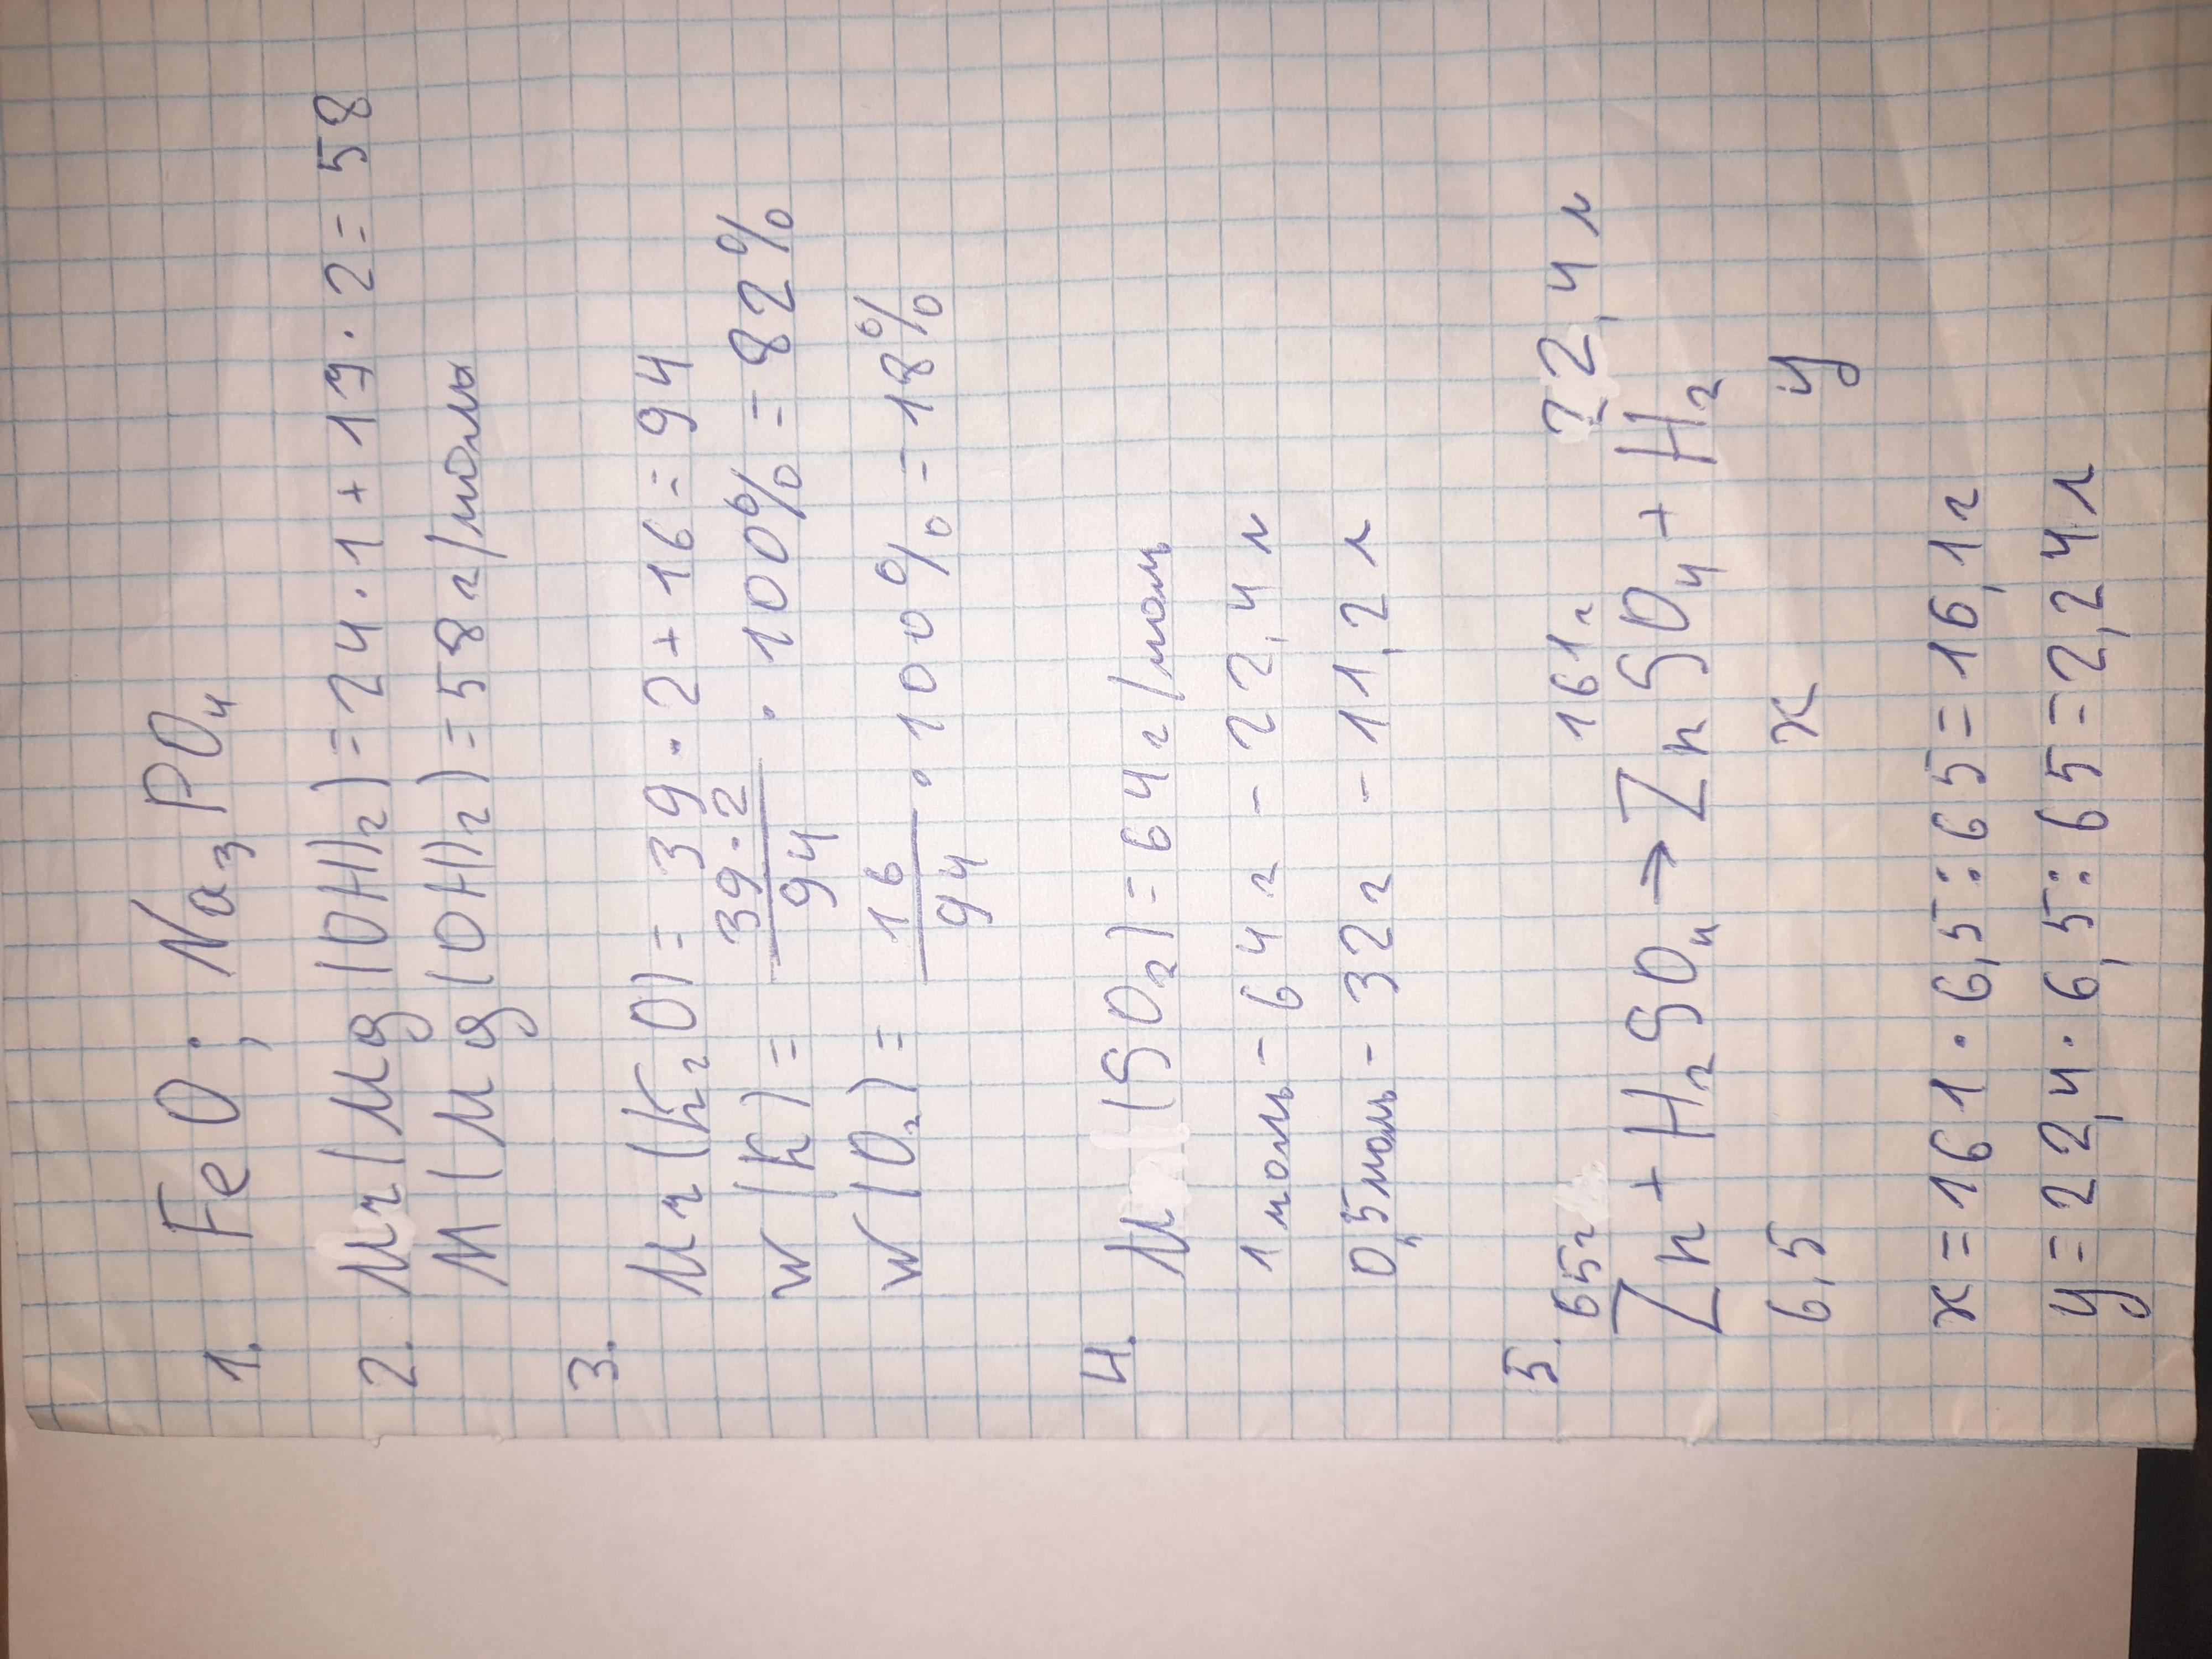 1. FeO; Na₃PO₄
2. Mr(Mg(OH)₂) = 24 · 1 + 17 · 2 = 58
M(Mg(OH)₂) = 58 г/моль
3. Mr(K₂O) = 39 · 2 + 16 = 94
w(K) = 39 · 2 / 94 · 100% = 82%
w(O₂) = 16 / 94 · 100% = 18%
4. M(SO₂) = 64 г/моль
1 моль - 64 г - 22,4 л
0,5 моль - 32 г - 11,2 л
5. 65г 161г 22,4 л
Zn + H₂SO₄ → ZnSO₄ + H₂
6,5 x y
x = 161 · 6,5 : 65 = 16,1 г
y = 22,4 · 6,5 : 65 = 2,24 л